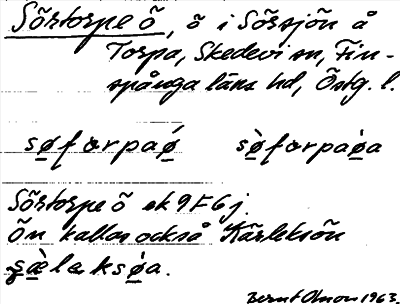 Sörtorpe ö, ö i Sörsjön å
Torpa, Skedevi sn, Fin-
spånga läns hd, Östg. l.
søfɔrpaǿ sø̀fɔrpaø̀a
Sörtorpe ö ek 9F6j.
Ön kallas också Kärleksön
sæ̀lɐksøa.
Bernt Olsson 1963.